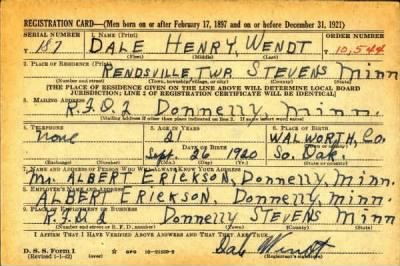 REGISTRATION CARD—(Men born on or after February 17, 1897 and on or before December 31, 1921)
SERIAL NUMBER 1. NAME (Print) ORDER NUMBER
T 187 DALE HENRY WENDT T 10,544
(First) (Middle) (Last)
2. PLACE OF RESIDENCE (Print)
RENDSVILLE TWP. STEVENS Minn
(Number and street) (Town, township, village, or city) (County) (State)
[THE PLACE OF RESIDENCE GIVEN ON THE LINE ABOVE WILL DETERMINE LOCAL BOARD
JURISDICTION; LINE 2 OF REGISTRATION CERTIFICATE WILL BE IDENTICAL]
3. MAILING ADDRESS
R.F.D. 2 Donnelly Minn.
[Mailing address if other than place indicated on line 2. If same insert word same]
4. TELEPHONE 5. AGE IN YEARS 6. PLACE OF BIRTH
None 21 WALWORTH, Co.
DATE OF BIRTH (Town or county)
Sept. 26 1920 So. Dak.
(Exchange) (Number) (Mo.) (Day) (Yr.) (State or country)
7. NAME AND ADDRESS OF PERSON WHO WILL ALWAYS KNOW YOUR ADDRESS
Mr. ALBERT ERICKSON, Donnelly, Minn.
8. EMPLOYER'S NAME AND ADDRESS
ALBERT ERICKSON, Donnelly, Minn.
9. PLACE OF EMPLOYMENT OR BUSINESS
R.F.D. 2 Donnelly STEVENS Minn
(Number and street or R. F. D. number) (Town) (County) (State)
I AFFIRM THAT I HAVE VERIFIED ABOVE ANSWERS AND THAT THEY ARE TRUE.
D. S. S. Form 1
(Revised 1-1-42) (over) Dale Wendt
(Registrant's signature)